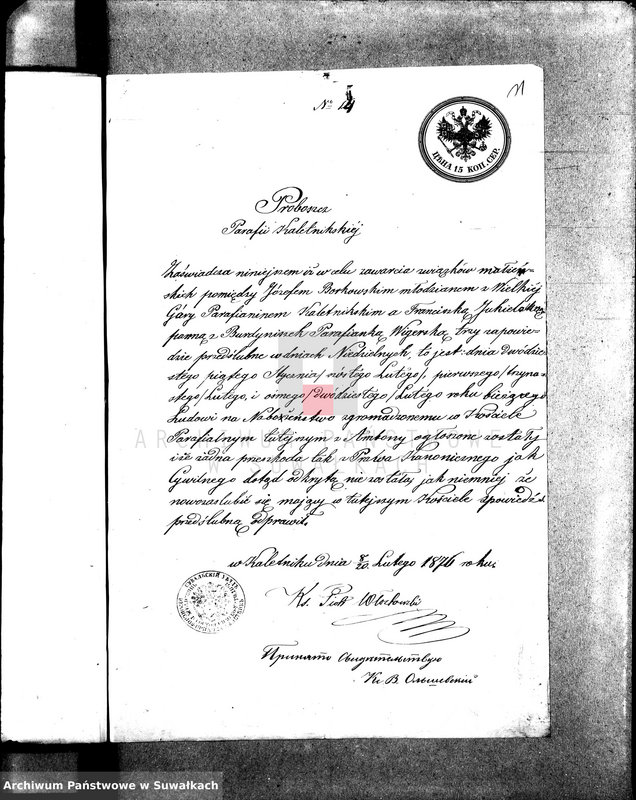 11
№ 14
ЦѢНА 15 КОП. СЕР.
Proboszcz
Parafii Kaletnikskiéj
Zaświadcza niniejszem iż w celu zawarcia związków małżeń-
skich pomiędzy Józefem Borkowskim młodzianem z Wielkiéj
Gury Parafianinem Kaletnikskim a Franciszką
panną z Burdyniszek Parafianką Wigerską, trzy zapowie-
dzie przedślubne w dniach Niedzielnych, to jest: dnia dwódzie-
stego piątego Stycznia/ szóstego Lutego/, pierwszego/ trzyna-
stego/ Lutego, i ósmego/ dwódziestego/ Lutego roku bieżącego
Ludowi na Nabożeństwo zgromadzonemu w Kościele
Parafialnym tutejszym z Ambony ogłoszone zostały
i że żadna przeszkoda tak z Prawa Kanonicznego jak
Cywilnego dotąd odkrytą nie została, jak niemniej że
nowozaślubić się mający w tutejszym Kościele spowiedź
przedślubną odprawił.
w Kaletniku dnia 8/20 Lutego 1876 roku
Ks. Piotr
Принято Свидѣтельствую
Кс. В. Ольшевскій
ARCHIWUM PAŃSTWOWE
W SUWAŁKACH
Archiwum Państwowe w Suwałkach